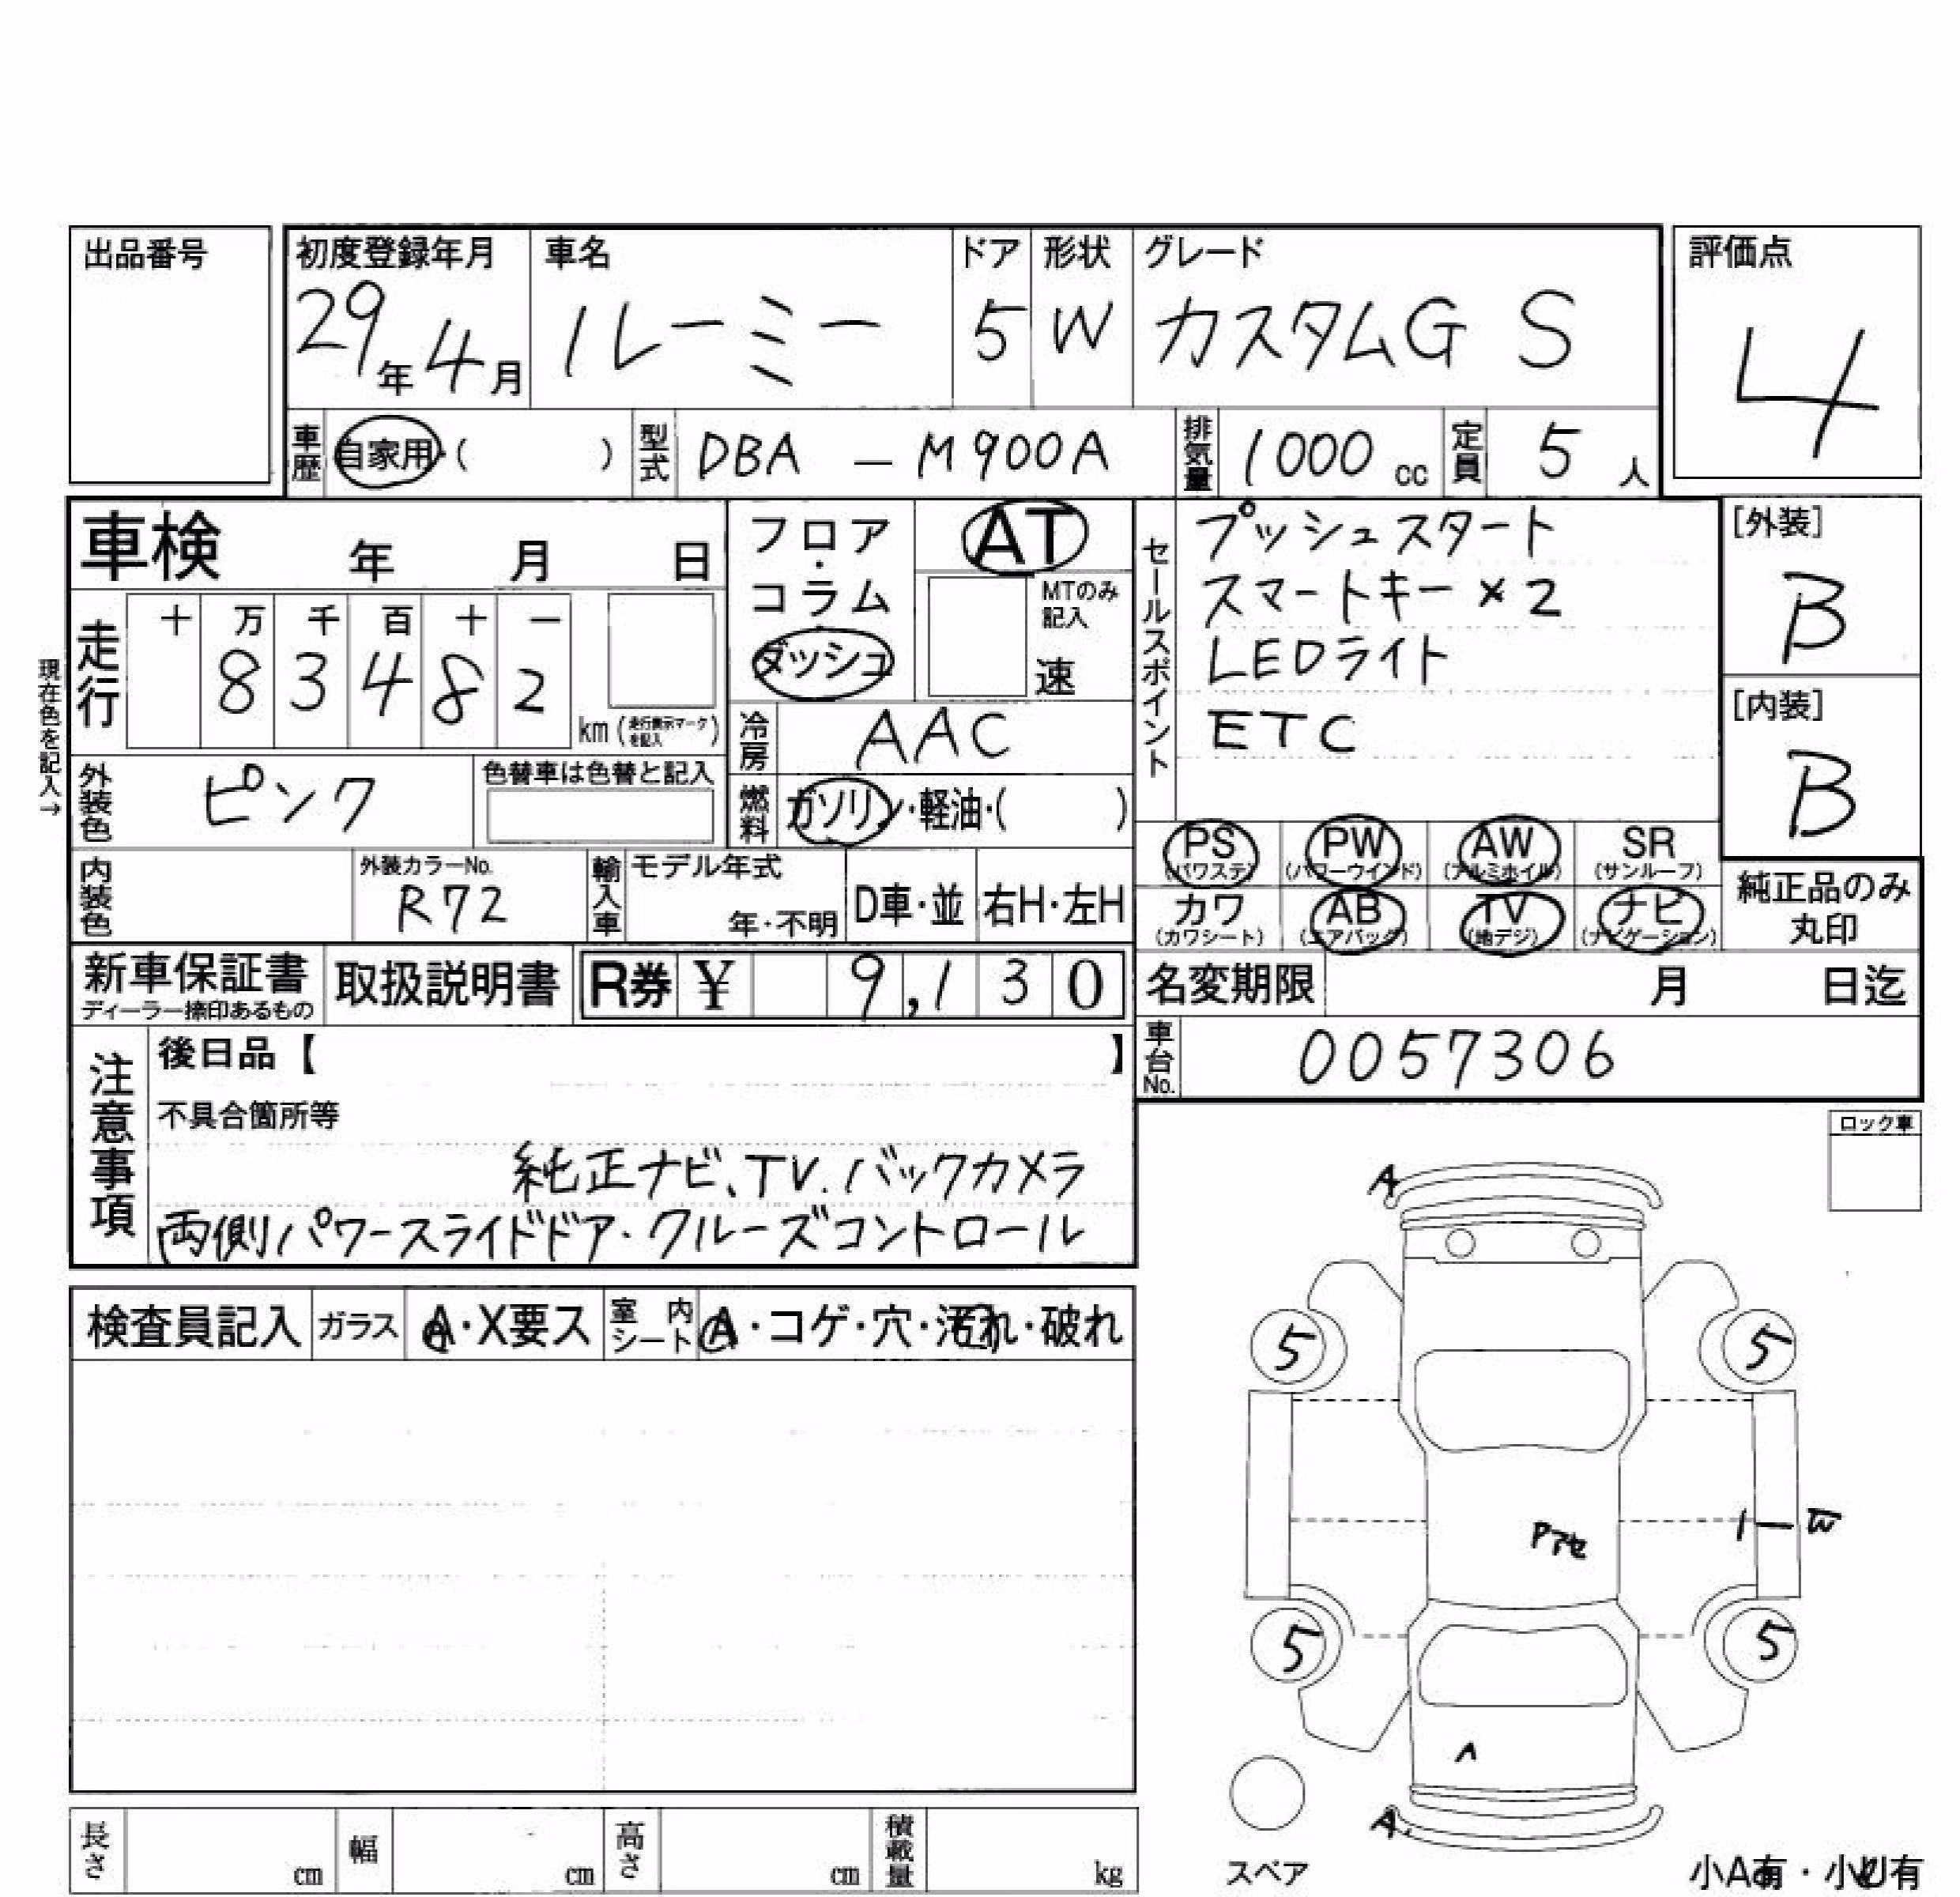 出品番号
初度登録年月 車名 ドア 形状 グレード 評価点
29年4月 ルーミー 5 W カスタムG S 4
車歴 自家用・( ) 型式 DBA-M900A 排気量 1000cc 定員 5人
車検 年 月 日
フロア・コラム ダッシュ
AT
MTのみ記入
速
現在色を記入→
走行 十 万 千 百 十 一
8 3 4 8 2
km(走行表示マークを記入)
冷房 AAC
外装色 ピンク 色替車は色替と記入
燃料 ガソリン・軽油・( )
内装色 外装カラーNo. R72
輸入車 モデル年式 年・不明 D車・並 右H・左H
セールスポイント
プッシュスタート
スマートキー×2
LEDライト
ETC
[外装]
B
[内装]
B
PS PW AW SR
(パワステ) (パワーウインド) (アルミホイル) (サンルーフ)
カワ AB TV ナビ
(カワシート) (エアバッグ) (地デジ) (ナビゲーション)
純正品のみ
丸印
新車保証書 取扱説明書 R券 ¥ 9,130
ディーラー捺印あるもの
名変期限 月 日迄
車台No. 0057306
注意事項
後日品【 】
不具合箇所等
純正ナビ、TV.バックカメラ
両側パワースライドドア・クルーズコントロール
ロック車
検査員記入 ガラス A・X要ス 室内シート A・コゲ・穴・汚れ・破れ
A
5 5
W
Pアセ
5 5
A
A.
スペア
長さ cm 幅 cm 高さ cm 積載量 kg
小A有・小U有